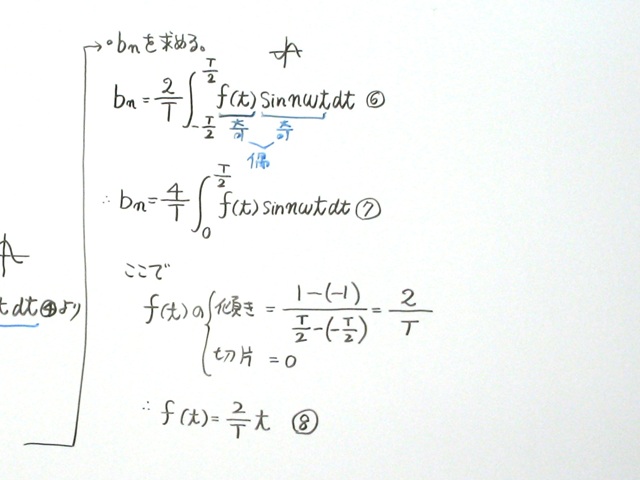 → ∘bnを求める。
bn = 2/T ∫_{-T/2}^{T/2} f(t) sin nωt dt ⑥
奇 奇
偶
∴ bn = 4/T ∫_0^{T/2} f(t) sin nωt dt ⑦
ここで
t dt ④より
f(t)の { 傾き = 1-(-1) / T/2-(-T/2) = 2/T
切片 = 0
∴ f(t) = 2/T t ⑧